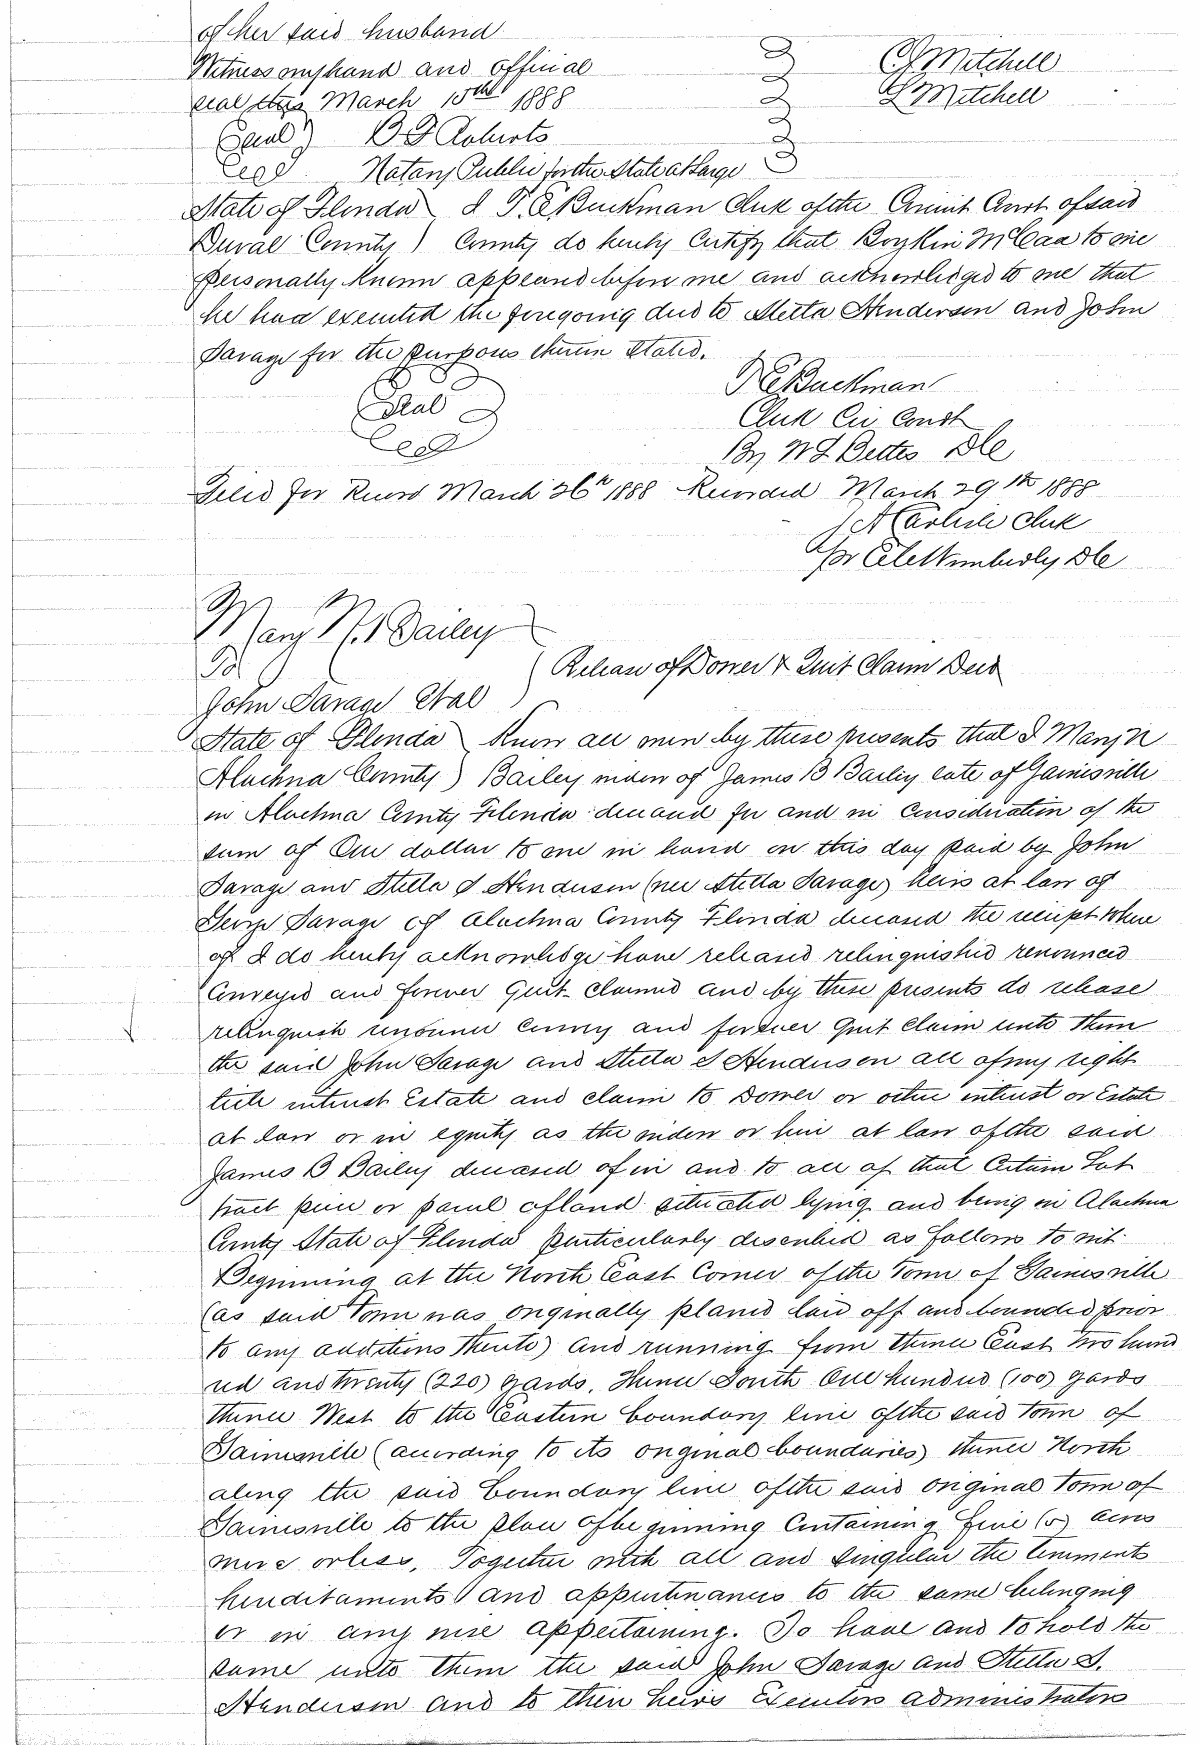 of her said husband
Witness my hand and official
seal this March 15th 1888
(Seal) B F Roberts
Notary Public for the State at Large
C J Mitchell
L Mitchell
State of Florida I T. E. Buckman Clerk of the Circuit Court of said
Duval County ) County do hereby Certify that Boykin McCaa to me
personally known appeared before me and acknowledged to me that
he had executed the foregoing deed to Stella Henderson and John
Savage for the purposes therein stated.
T E Buckman
(Seal) Clerk Cir Court
By W L Bettes Dc
Filed for Record March 26th 1888 Recorded March 29th 1888
J A Carlisle Clerk
pr Wimberly Dc
Mary N. Bailey
To
Release of Dower & Quit Claim Deed
John Savage Et al
State of Florida Know all men by these presents that I Mary N
Alachua County ) Bailey widow of James B Bailey late of Gainesville
in Alachua County Florida deceased for and in Consideration of the
sum of One dollar to me in hand on this day paid by John
Savage and Stella S Henderson (nee Stella Savage) heirs at law of
George Savage of Alachua County Florida deceased the receipt where
of I do hereby acknowledge have released relinquished renounced
Conveyed and forever Quit-Claimed and by these presents do release
relinquish renounce Convey and forever Quit Claim unto them
the said John Savage and Stella S Henderson all of my right
title interest Estate and claim to Dower or other interest or Estate
at law or in equity as the widow or heir at law of the said
James B Bailey deceased of in and to all of that Certain Lot
tract piece or parcel of land situated lying and being in Alachua
County State of Florida particularly described as follows to wit
Beginning at the North East Corner of the Town of Gainesville
(as said Town was originally planed laid off and bounded prior
to any additions thereto) and running from thence East two hund
red and twenty (220) yards. Thence South One hundred (100) yards
thence West to the Eastern boundary line of the said Town of
Gainesville (according to its original boundaries) thence North
along the said boundary line of the said original Town of
Gainesville to the place of beginning Containing five (5) acres
more or less. Together with all and singular the tenements
hereditaments and appurtenances to the same belonging
or in any wise appertaining. To have and to hold the
same unto them the said John Savage and Stella S.
Henderson and to their heirs Executors administrators